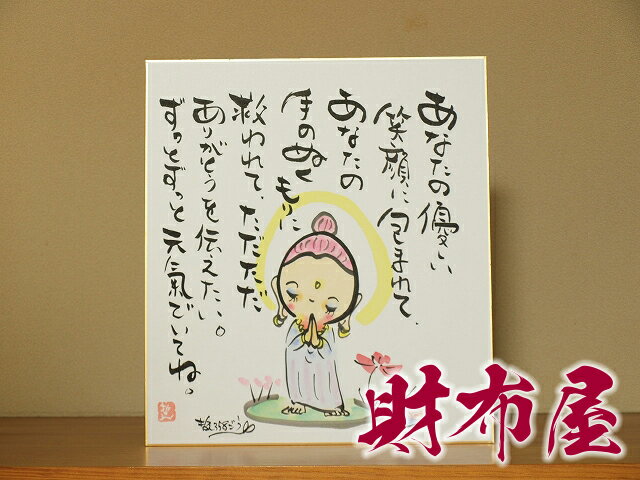 あなたの優しい
笑顔に包まれて、
あなたの
手のぬくもりに
救われて、ただただ
ありがとうを伝えたい。
ずっとずっと元氣でいてね。
財布屋